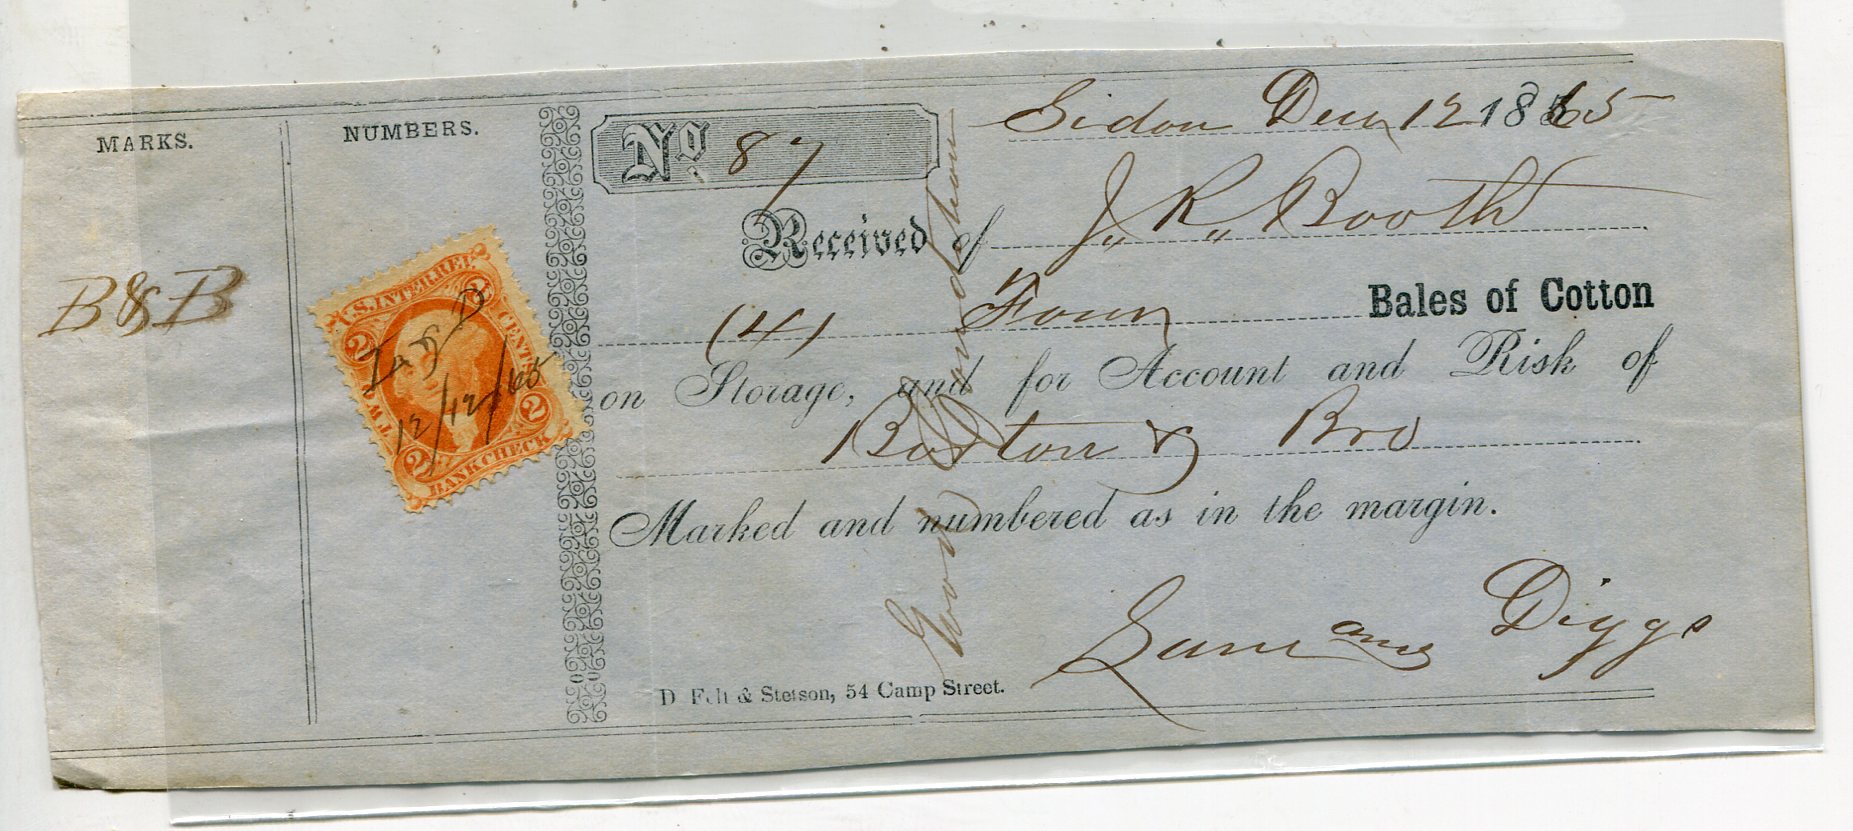 MARKS.
NUMBERS.
B&B
U.S. INTER. REV.
2 2
TWO CENTS
2 2
BANK CHECK
L & D
12/12/65
No. 87
Sidon Dec 12 1865
Received of J. R. Booth
(4) Four Bales of Cotton
on Storage, and for Account and Risk of
& Bro
Marked and numbered as in the margin.
Good Condition
Diggs
D Felt & Stetson, 54 Camp Street.